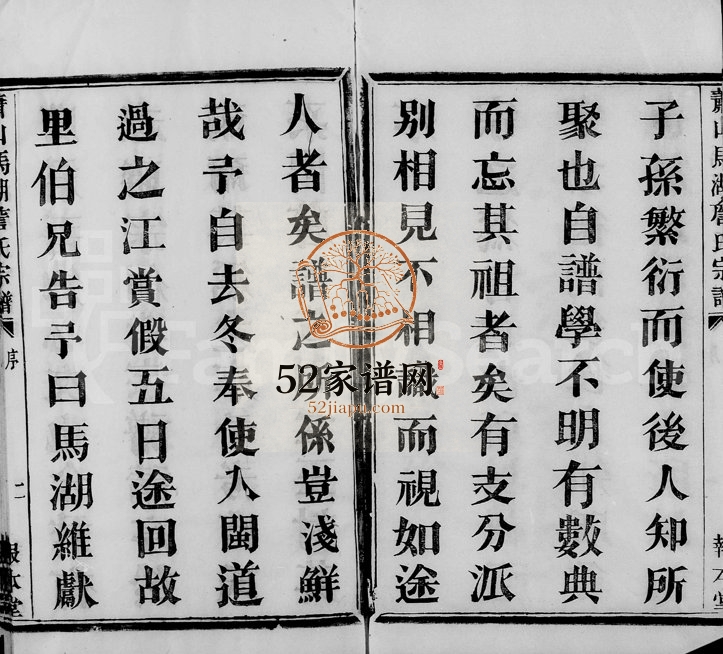 蕭山馬湖詹氏宗譜
子孫繁衍而使後人知所
聚也自譜學不明有數典
而忘其祖者矣有支分派
别相見不相識而視如途
人者矣譜之所係豈淺鮮
哉予自去冬奉使入閩道
過之江賞假五日途回故
里伯兄告予曰馬湖維獻
蕭山馬湖詹氏宗譜
序
二
報本堂
52家谱网
52jiapu.com
FamilySearch